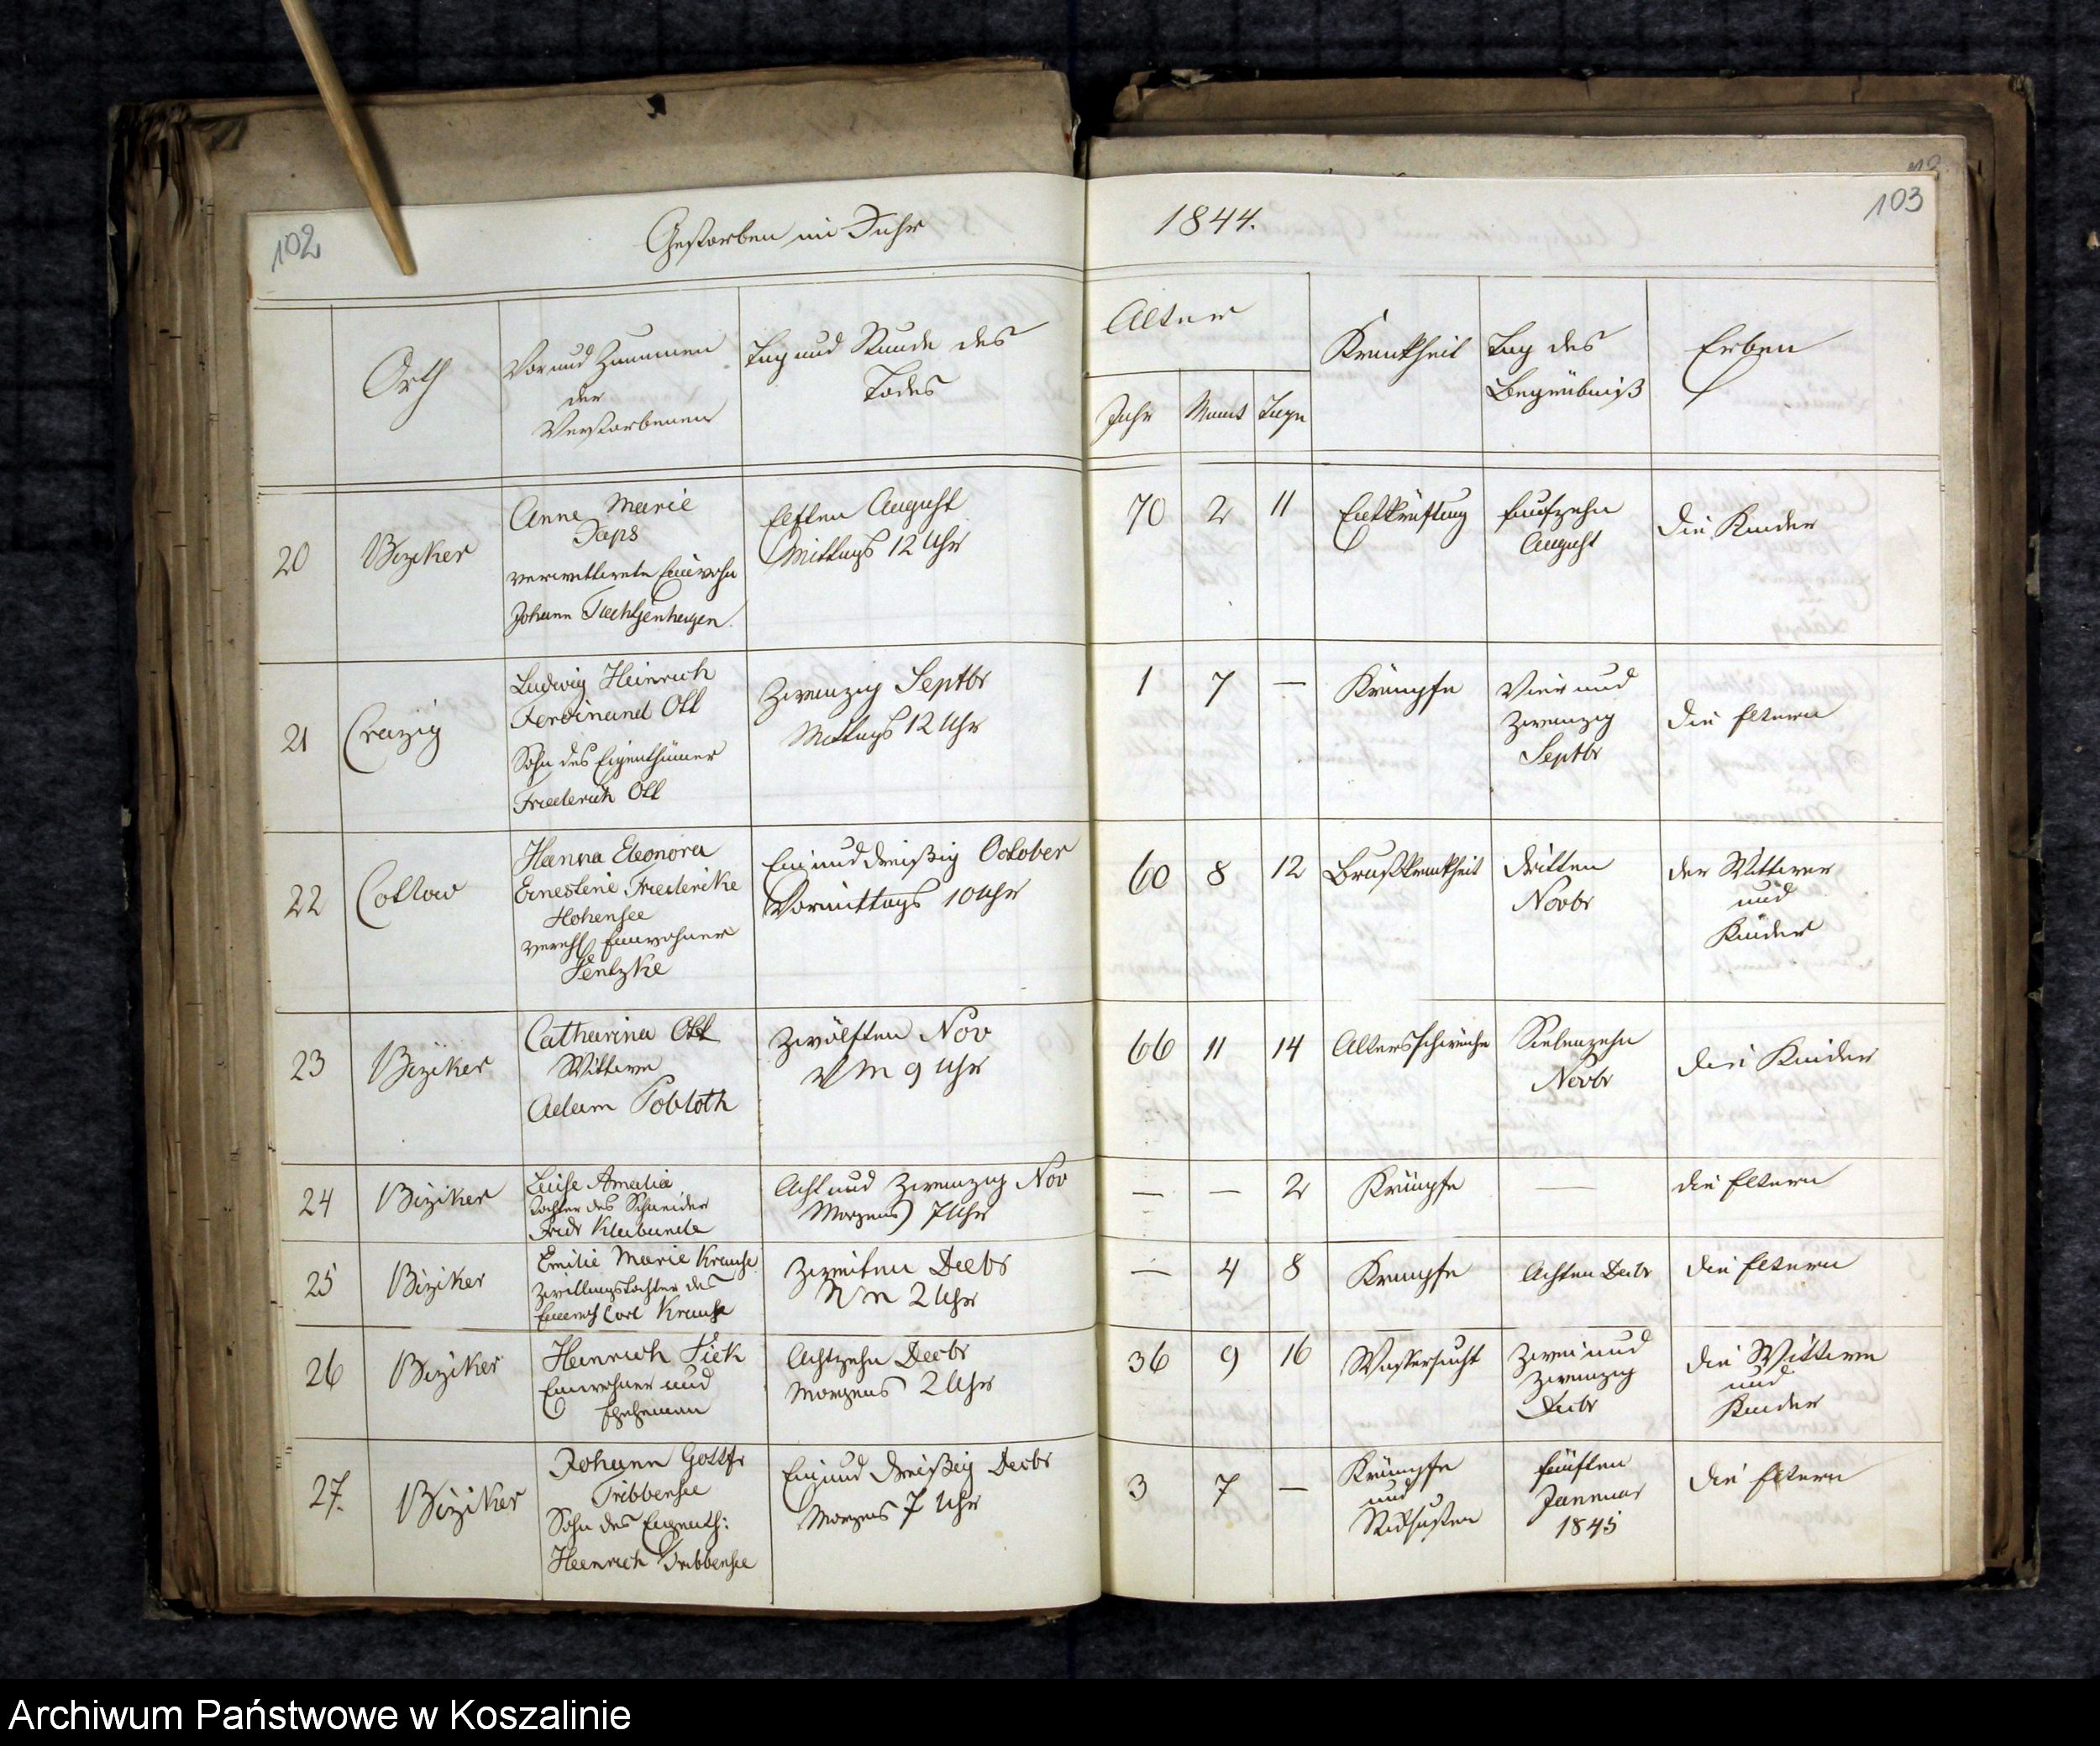 102
Gestorben im Jahr
1844.
103
Orth
Vor und Zunamen
der
Verstorbenen
Tag und Stunde des
Todes
Alter
Jahr
Monat
Tage
Krankheit
Tag des
Begräbniß
Erben
20
Biziker
Anne Marie
Taps
verwittwete Einwohn
Johann Fuchtjenhagen.
Elften August
Mittags 12 Uhr
70
2
11
Entkräftung
Funfzehn
August
die Kinder
21
Crazig
Ludwig Heinrich
Ferdinand Ott
Sohn des Eigenthümer
Friederich Ott
Zwanzig Septbr
Mittags 12 Uhr
1
7
—
Krämpfe
Vier und
Zwanzig
Septbr
die Eltern
22
Cottow
Hanna Eleonora
Ernestine Friederike
Hohensee
verehl Einwohner
Jentzke
Ein und dreißig October
Vormittags 10 Uhr
60
8
12
Brustkrankheit
dritten
Novbr
der Wittwer
und
Kinder
23
Biziker
Catharina Ott
Wittwe
Adam Pobloth
Zwölften Nov
V M 9 Uhr
66
11
14
Altersschwäche
Siebenzehn
Novbr
die Kinder
24
Biziker
Luise Amalia
Tochter des Schneider
Fridr Klabunde
Acht und Zwanzig Nov
Morgens 7 Uhr
—
—
2
Krämpfe
—
die Eltern
25
Biziker
Emilie Marie Krause
Zwillingstochter des
Einwoh Carl Krause
Zweiten Decbr
N m 2 Uhr
—
4
8
Krämpfe
Achten Decbr
die Eltern
26
Biziker
Heinrich Fick
Einwohner und
Ehemann
Achtzehn Decbr
Morgens 2 Uhr
36
9
16
Wassersucht
Zwei und
Zwanzig
Decbr
die Wittwe
und
Kinder
27.
Biziker
Johann Gottfr
Tribbensee
Sohn des Eigenth:
Heinrich Tribbensee
Ein und dreißig Decbr
Morgens 7 Uhr
3
7
—
Krämpfe
und
Stickhusten
fünften
Januar
1845
die Eltern
Archiwum Państwowe w Koszalinie